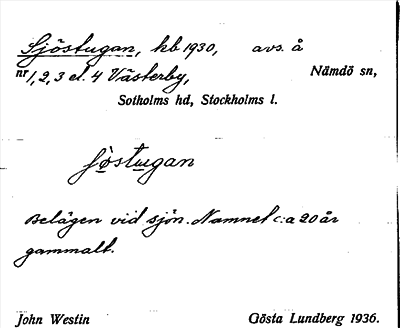 Sjöstugan, hb 1930, avs. å
nr 1, 2, 3 el. 4 Västerby, Nämdö sn,
Sotholms hd, Stockholms l.
ʃöstugan
Belägen vid sjön. Namnet c:a 20 år
gammalt.
John Westin Gösta Lundberg 1936.